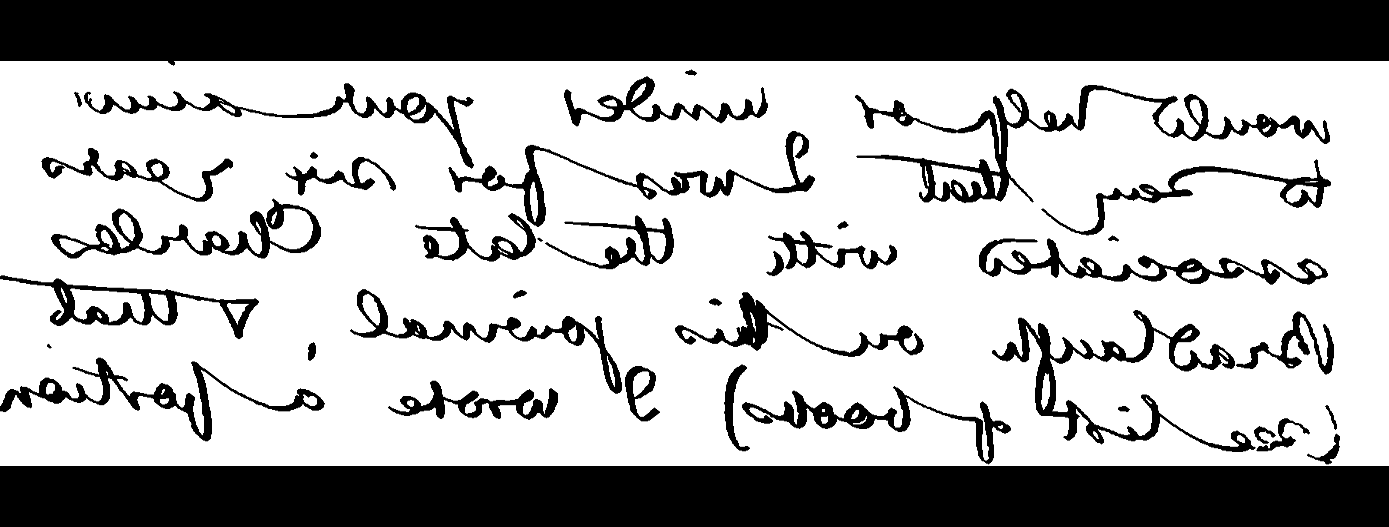 would help or hinder your aim"
to say that I was for six years
associated with the late Charles
Bradlaugh on this journal, & that
(see list of books) I wrote a portion